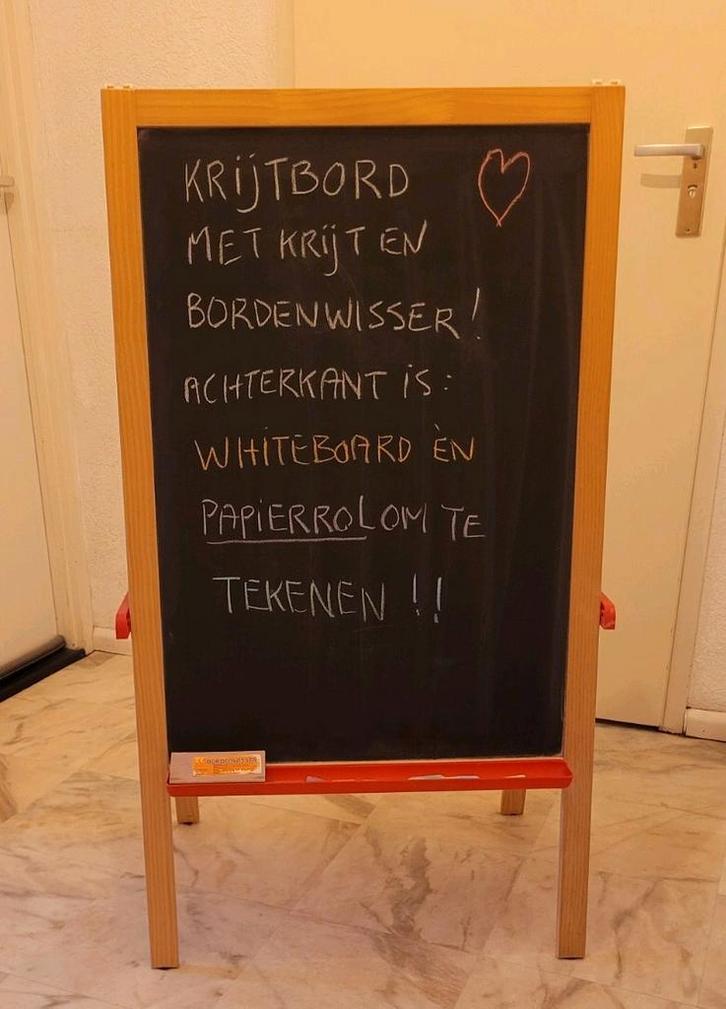 KRIJTBORD
MET KRIJT EN
BORDENWISSER!
ACHTERKANT IS:
WHITEBOARD ÈN
PAPIERROL OM TE
TEKENEN !!